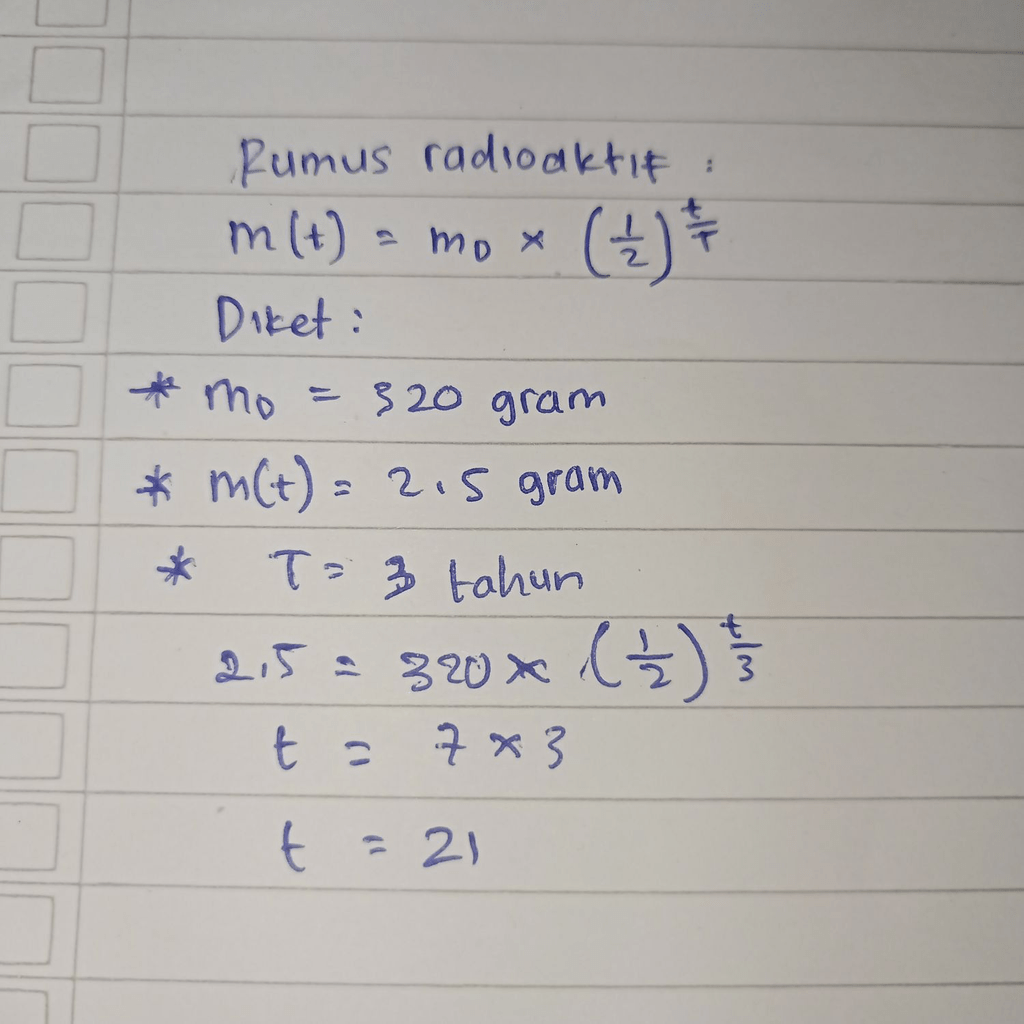 Rumus radioaktif :
m(t) = m₀ × (1/2)^(t/T)
Diket :
* m₀ = 320 gram
* m(t) = 2.5 gram
* T = 3 tahun
2.5 = 320 × (1/2)^(t/3)
t = 7 × 3
t = 21